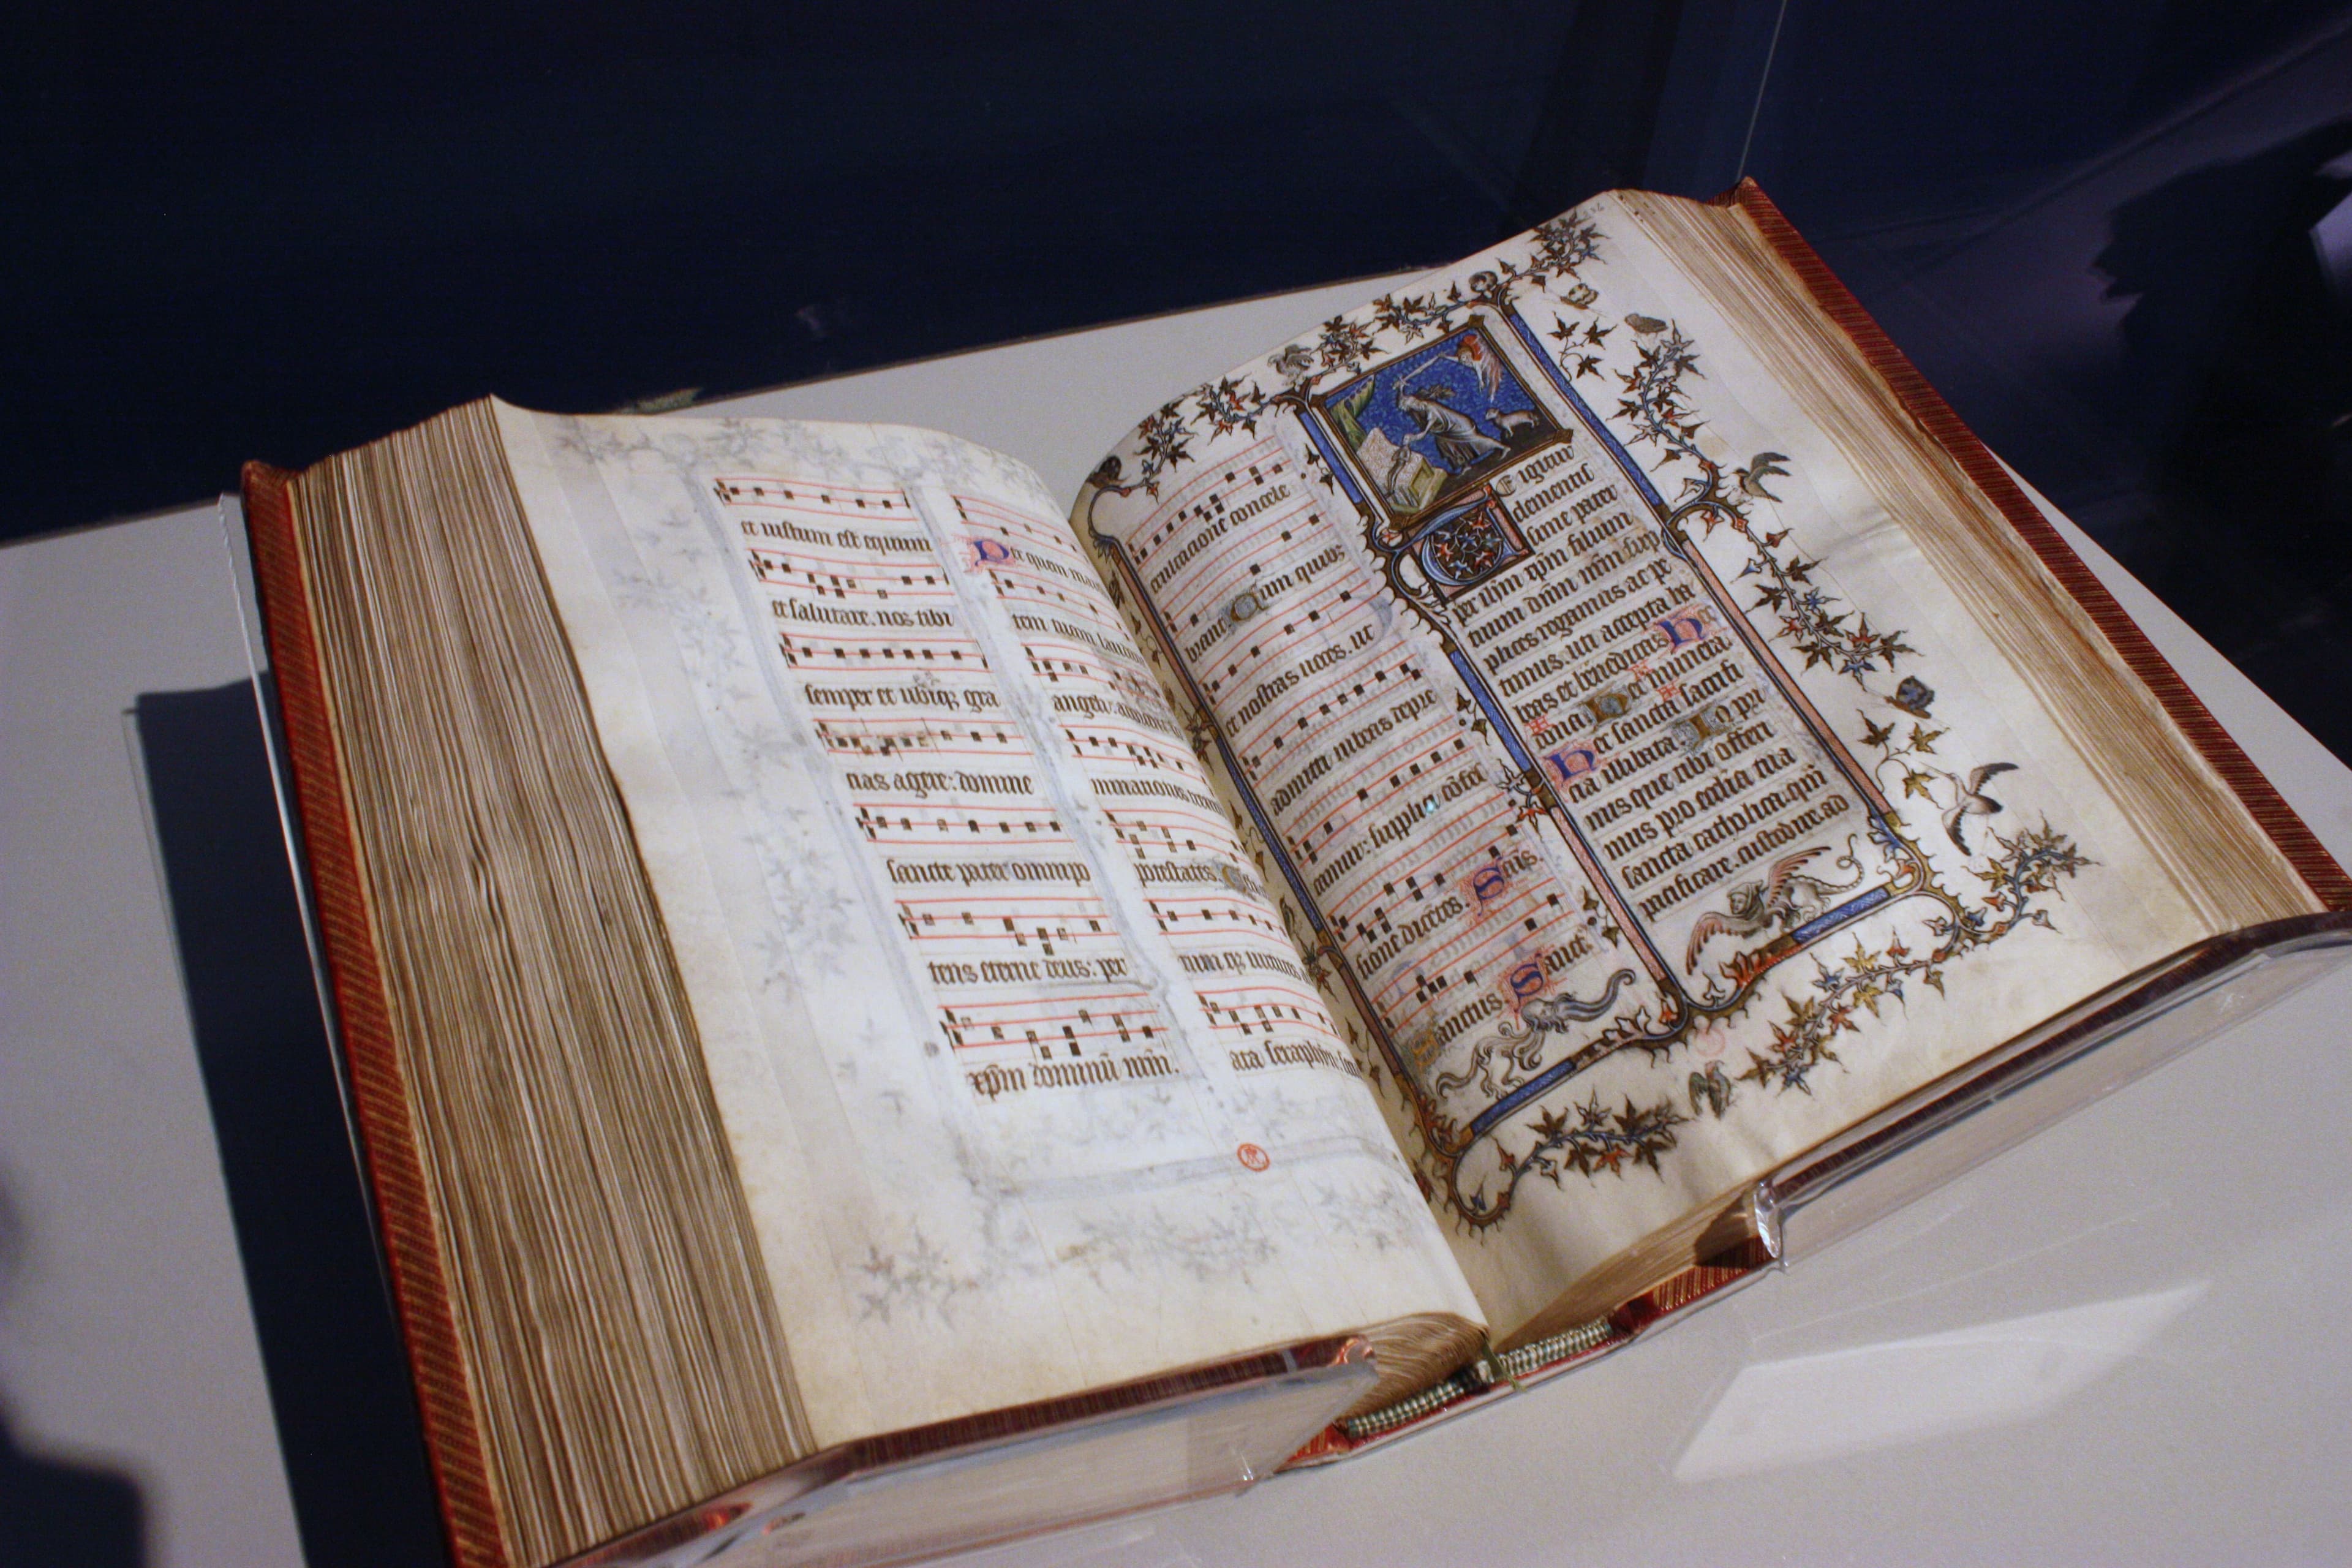 et iustum est equum
et salutare. nos tibi
semper et ubiqꝫ gra
tias agere: domine
sancte pater omnipo
tens eterne deus: per
xp̄m dominū nr̄m.
Per quem maies
tem tuam laudant
angeli: adorant
minationes tremunt
potestates. Celi
rum qꝫ uirtutes
ata seraphim: soci
exultatione concele
brant. Cum quibꝫ
et nostras uoces. ut
admitti iubeas depre
camur: supplici cōfes
sione dicētes. Scūs.
Sanctus. Sanct
Te igitur
clementis
sime pater
per ihm̄ xp̄m filium
tuum dn̄m nr̄m: sup
plices rogamus ac pe
timus. uti accepta ha
beas et benedicas Hec
dona. Hec munera.
Hec sancta sacrifi
cia illibata. In pri
mis que tibi offeri
mus pro ecclia tua
sancta catholica: qm̄
pacificare. custodire. ad